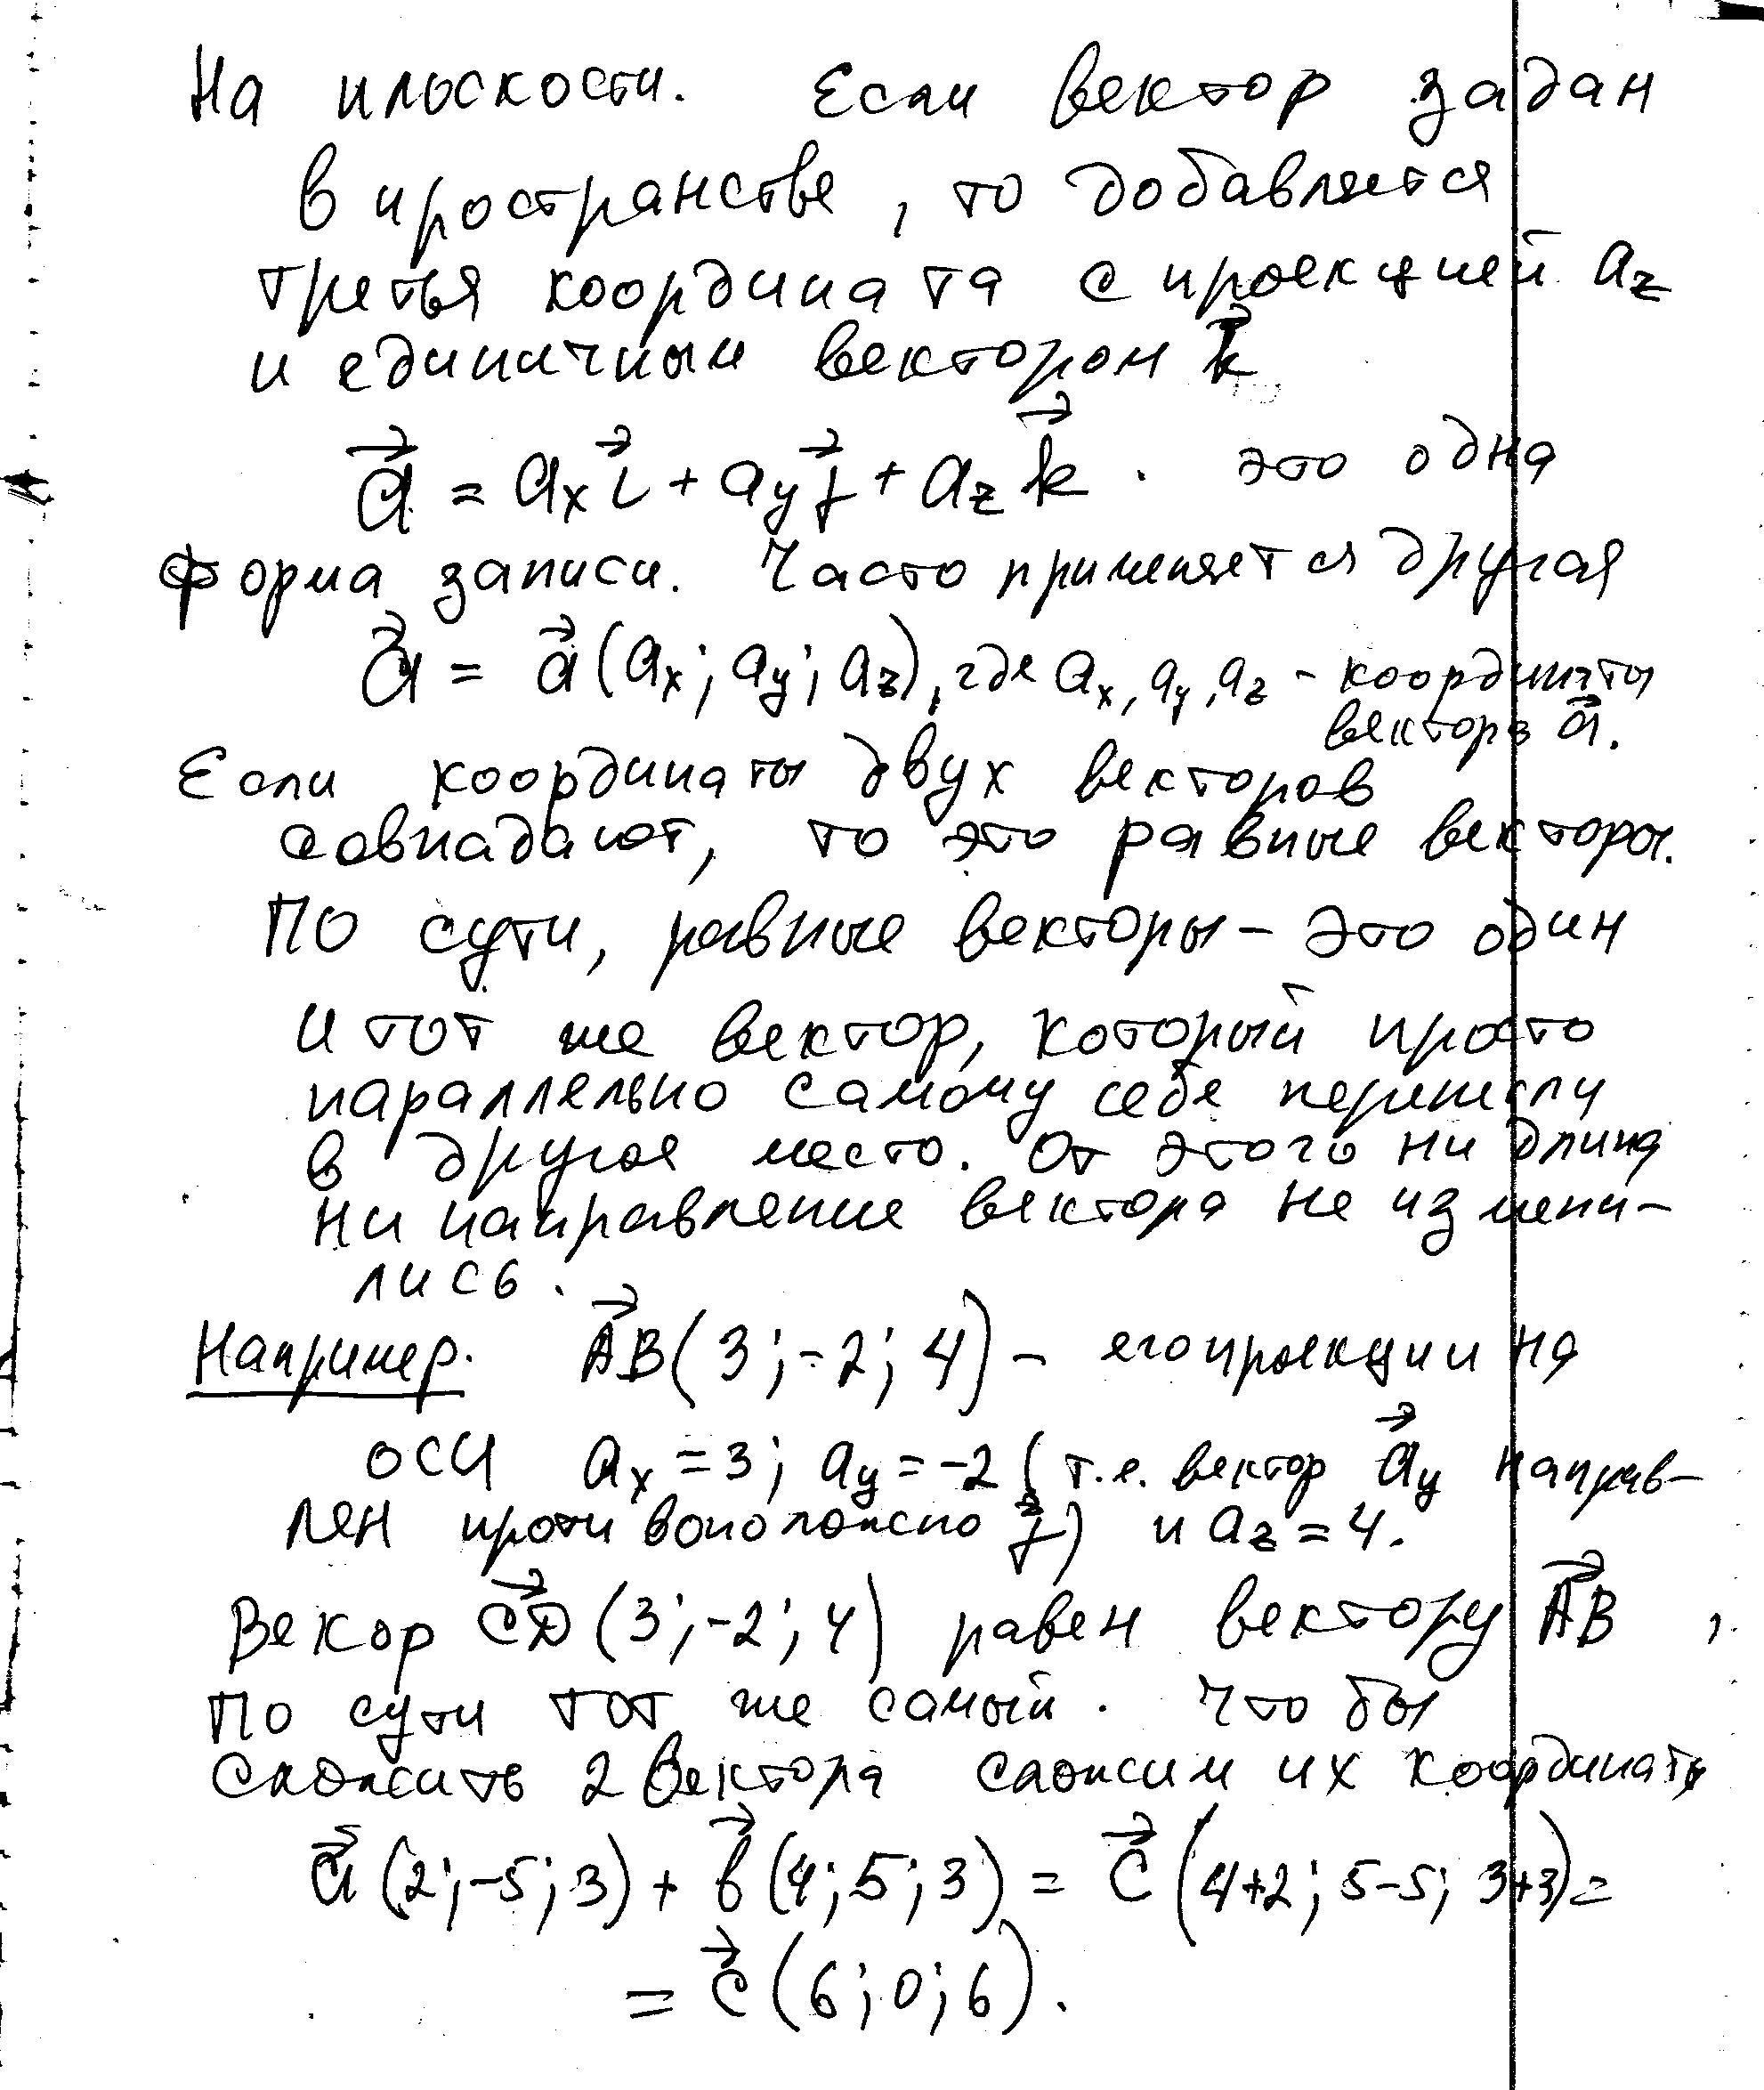 На плоскости. Если вектор задан
в пространстве, то добавляется
третья координата с проекцией a_z
и единичным вектором k⃗
a⃗ = a_x i⃗ + a_y j⃗ + a_z k⃗. это одна
форма записи. Часто применяется другая
a⃗ = a⃗(a_x; a_y; a_z), где a_x, a_y, a_z - координаты
вектора a⃗.
Если координаты двух векторов
совпадают, то это равные векторы.
По сути, равные векторы - это один
и тот же вектор, который просто
параллельно самому себе перенесли
в другое место. От этого ни длина
ни направление вектора не измени-
лись.
Например. A⃗B(3; -2; 4) - его проекции на
оси a_x = 3; a_y = -2 (т.е. вектор a⃗_y направ-
лен противоположно j⃗) и a_z = 4.
Векор C⃗D(3; -2; 4) равен вектору A⃗B,
по сути тот же самый. Что бы
сложить 2 вектора сложим их координаты
a⃗(2; -5; 3) + b⃗(4; 5; 3) = c⃗(4+2; 5-5; 3+3) =
= c⃗(6; 0; 6).